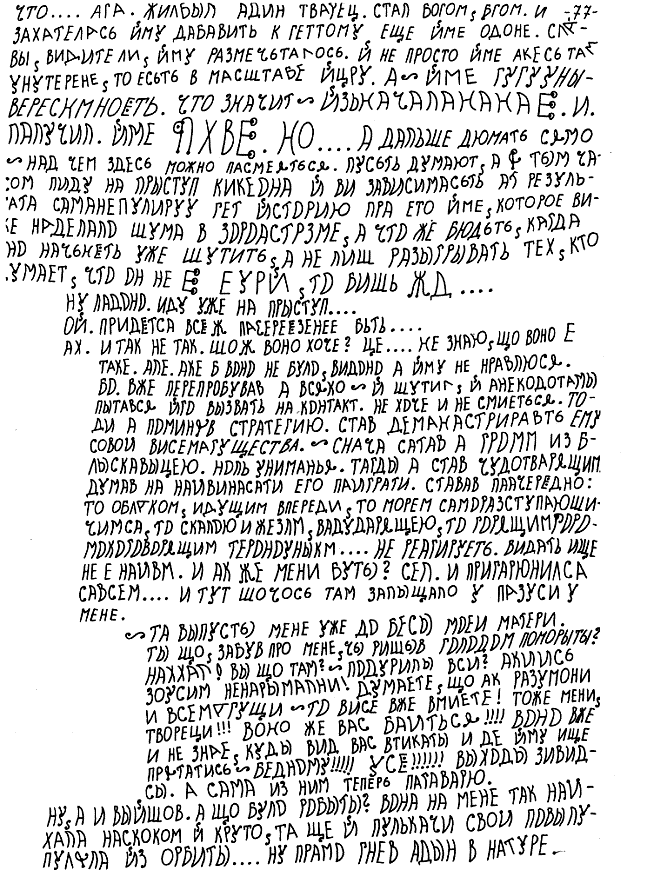 ЧТО.... АГА. ЖИЛБЫЛ АДИН ТВАРЕЦ. СТАЛ БОГОМ, ВГОМ. И -77-
ЗАХАТЕЛАСЬ ЙМУ ДАБАВИТЬ К ГЕТТОМУ, ЕЩЕ ЙМЕ ОДОНЕ.
ВЫ, ВИДИТЕ ЛИ, ЙМУ РАЗМЕЧЬТАЛОСЬ. Й НЕ ПРОСТО ЙМЕ АКЕСЬ ТАТ
УНУТЕРЕНЕ, ТО ЕСЬТЬ В МАСШТАБЕ ЙЦРУ. А ~ ЙМЕ ГУГУУНЫ-
ВЕРЕСКМНОЕТЬ. ЧТО ЗНАЧИТ ~ ЙЗЬНАЧАЛАНАНАЕ. И.
ПАЛУЧИЛ. ЙМЕ ПХВЕ. НО.... А ДАЛЬШЕ ДЮМАТЬ СЯМО
~ НАД ЧЕМ ЗДЕСЬ МОЖНО ПАСМЕЯТЬСЕ. ПУСЬТЬ ДУМАЮТ, А Я ТЫМ ЧА-
СОМ ПИДУ НА ПРЫСТУП КИКЕДНА Й ВИ ЗАВИСИМАСЬТЬ АТ РЕЗУЛЬ-
ТАТА САМАНЕПУЛИРУУ ГЕТ ЙСТОРИЮ ПРА ЕТО ЙМЕ, КОТОРОЕ ВИ-
ЖЕ НАДЕЛАЛО ШУМА В ЗОРОАСТРЗМЕ, А ЧТО ЖЕ БЮДЬТЬ, КАГДА
НО НАЧЬНЕТЬ УЖЕ ШУТИТЬ, А НЕ ЛИШ РАЗЫГРЫВАТЬ ТЕХ, КТО
ДУМАЕТ, ЧТО ОН НЕ Е ЕУРІЙ, ТО ВИШЬ ЖД....
НУ ЛАДОНО. ИДУ УЖЕ НА ПРЫСТУП....
ОЙ. ПРИДЕТСА ВСЕ Ж ПАСЕРЕЕЗЕНЕЕ БЬТЬ....
АХ. И ТАК НЕ ТАК. ШОЖ ВОНО ХОЧЕ? ЦЕ.... НЕ ЗНАЮ, ЩО ВОНО Е
ТАКЕ. АЛЕ. АКЕ Б ВОНО НЕ БУЛО, ВИДОНО А ЙМУ НЕ НРАВЛЮСЯ.
БО. ВЖЕ ПЕРЕПРОБУВАВ А ВСЯКО ~ Й ШУТИГ, Й АНЕКОДОТАМЫ
ПЫТАВСЯ ЙГО ВЫЗВАТЬ НА КОНТАКТ. НЕ ХОЧЕ И НЕ СМИЕТЬСЯ. ТО-
ДИ А ПОМИНУВ СТРАТЕГИЮ. СТАВ ДЕМАНАСТРИРАВТЬ ЕМУ
СОВОИ ВИСЕМАГУЩЕСТВА. ~ СНАЧА САТАВ А ГРОММ ИЗ Б-
ЛЫСКАВЫЦЕЮ. НОЛЬ УНИМАНЬЯ. ТАГДЫ А СТАВ ЧУДОТВАРЯЩИМ.
ДУМАВ НА НАИВИНАСАТИ ЕГО ПАИГРАТИ. СТАВАВ ПААЧЕРЕДНО:
ТО ОБЛАКОМ, ИДУЩИМ ВПЕРЕДИ, ТО МОРЕМ САМОРАЗСТУПАЮЩИ-
ЧИМСА, ТО СКАЛОЮ И ЖЕЗЛМ, ВАДУДАРЯЩЕЮ, ТО ГОРЯЩИМГОРО-
МОХОГОВОРЯЩИМ ТЕРОНОУНЫКМ.... НЕ РЕАГИРУЕТЬ. ВИДАТЬ ИЩЕ
НЕ Е НАИВМ. И АК ЖЕ МЕНИ БУТЬ? СЕЛ. И ПРИГАРЮНИЛСА
САВСЕМ.... И ТУТ ШОЧОСЬ ТАМ ЗАПЫЩАЛО У ПАЗУСИ У
МЕНЕ.
~ ТА ВЫПУСТЬ МЕНЕ УЖЕ ДО БЕСЫ МОЕИ МАТЕРИ.
ТЫ ЩО, ЗАБУВ ПРО МЕНЕ, ЧЫ РИШЫВ ГОЛОДОМ ПОМОРЫТЫ?
ВЫ ЩО ТАМ? ~ ПОДУРИЛЫ ВСИ? АКИЛИСЬ
ЗОУСИМ НЕНАРЫМАЛНИ! ДУМАЕТЕ, ЩО АК РАЗУМОНИ
И ВСЕМГРУЩИ ~ ТО ВИСЕ ВЖЕ ВМИЕТЕ! ТОЖЕ МЕНИ,
ТВОРЕЦИ!!! ВОНО ЖЕ ВАС БАИТЬСЯ!!!! ВОНО ВЖЕ
И НЕ ЗНАЕ, КУДЫ ВИД ВАС ВТИКАТЫ И ДЕ ЙМУ ИЩЕ
ПРЯТАТИСЬ ~ БЕДНОМУ!!!!! УСЕ!!!!!! ВЫХОДЫ ЗИВИД-
СЫ. А САМА ИЗ НИМ ТЕПЕРЬ ПАТАВАРЮ.
НУ, А И ВЫЙШОВ. А ЩО БУЛО РОБЫТЫ? ВОНА НА МЕНЕ ТАК НАИ-
ХАЛА НАСКОКОМ Й КРУТО, ТА ЩЕ Й ПУЛЬКАЧИ СВОИ ПОВЫПУ-
ПУЛЯЛА ЙЗ ОРБИТЫ.... НУ ПРАМО ГНЕВ АДЫН В НАТУРЕ.